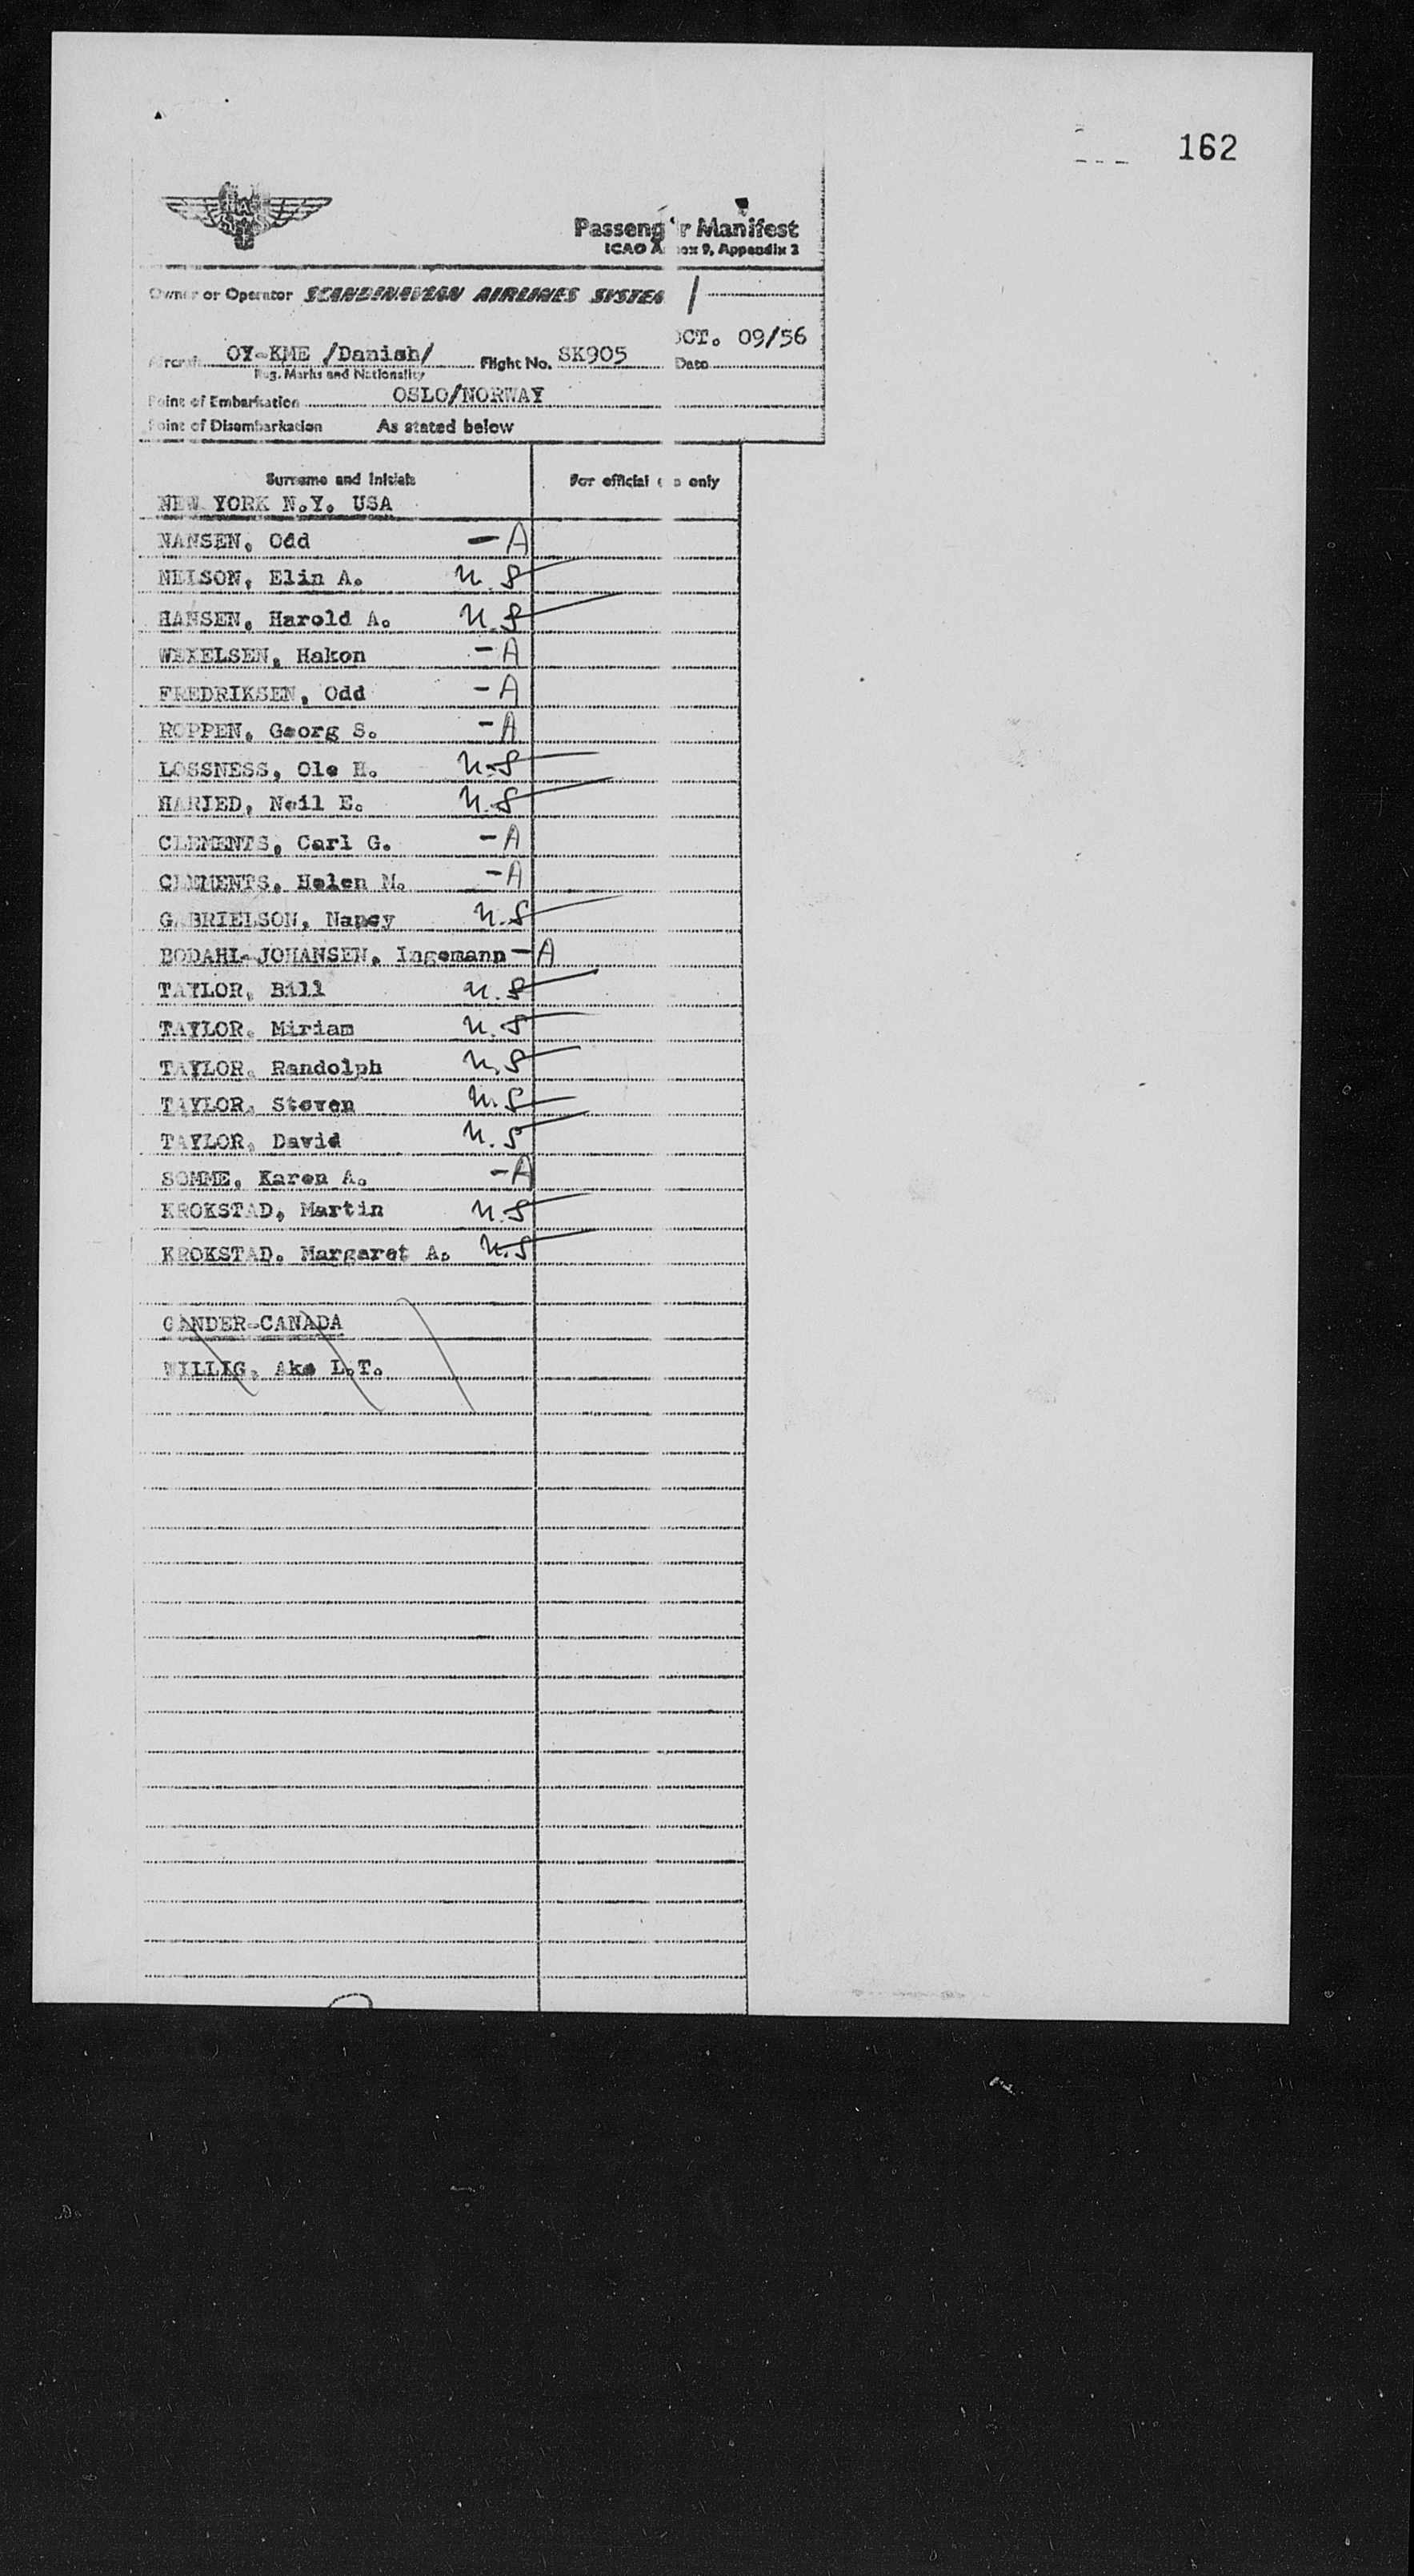 162
Passenger Manifest
ICAO Annex 9, Appendix 2
Owner or Operator SCANDINAVIAN AIRLINES SYSTEM
OCT. 09/56
Aircraft OY-KME /Danish/ Flight No. SK905 Date
Reg. Marks and Nationality
Point of Embarkation OSLO/NORWAY
Point of Disembarkation As stated below
Surname and Initials For official use only
NEW YORK N.Y. USA
NANSEN, Odd - A
NELSON, Elin A. U.S
HANSEN, Harold A. U.S
WEXELSEN, Hakon - A
FREDRIKSEN, Odd - A
ROPPEN, Georg S. - A
LOSSNESS, Ole H. U.S
HARIED, Neil E. U.S
CLEMENTS, Carl G. - A
CLEMENTS, Helen M. - A
GABRIELSON, Nancy U.S
BODAHL-JOHANSEN, Ingemann - A
TAYLOR, Bill U.S
TAYLOR, Miriam U.S
TAYLOR, Randolph U.S
TAYLOR, Steven U.S
TAYLOR, David U.S
SOMME, Karen A. - A
KROKSTAD, Martin U.S
KROKSTAD. Margaret A. U.S
GANDER-CANADA
WILLIG, Ake L.T.